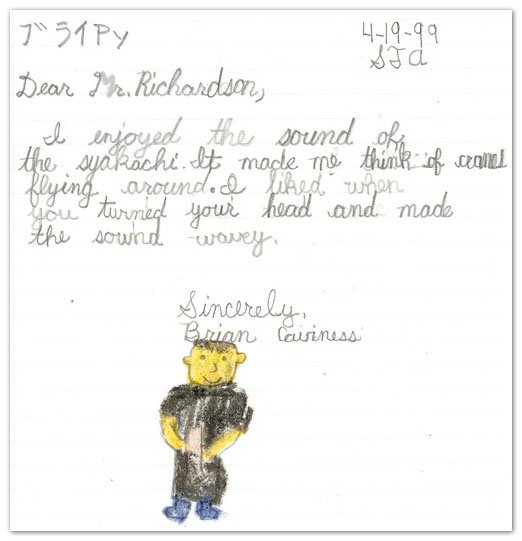 ブライPy
4-19-99
STA
Dear Mr. Richardson,
I enjoyed the sound of
the syakachi. It made me think of cranes
flying around. I liked when
you turned your head and made
the sound wavey.
Sincerely,
Brian